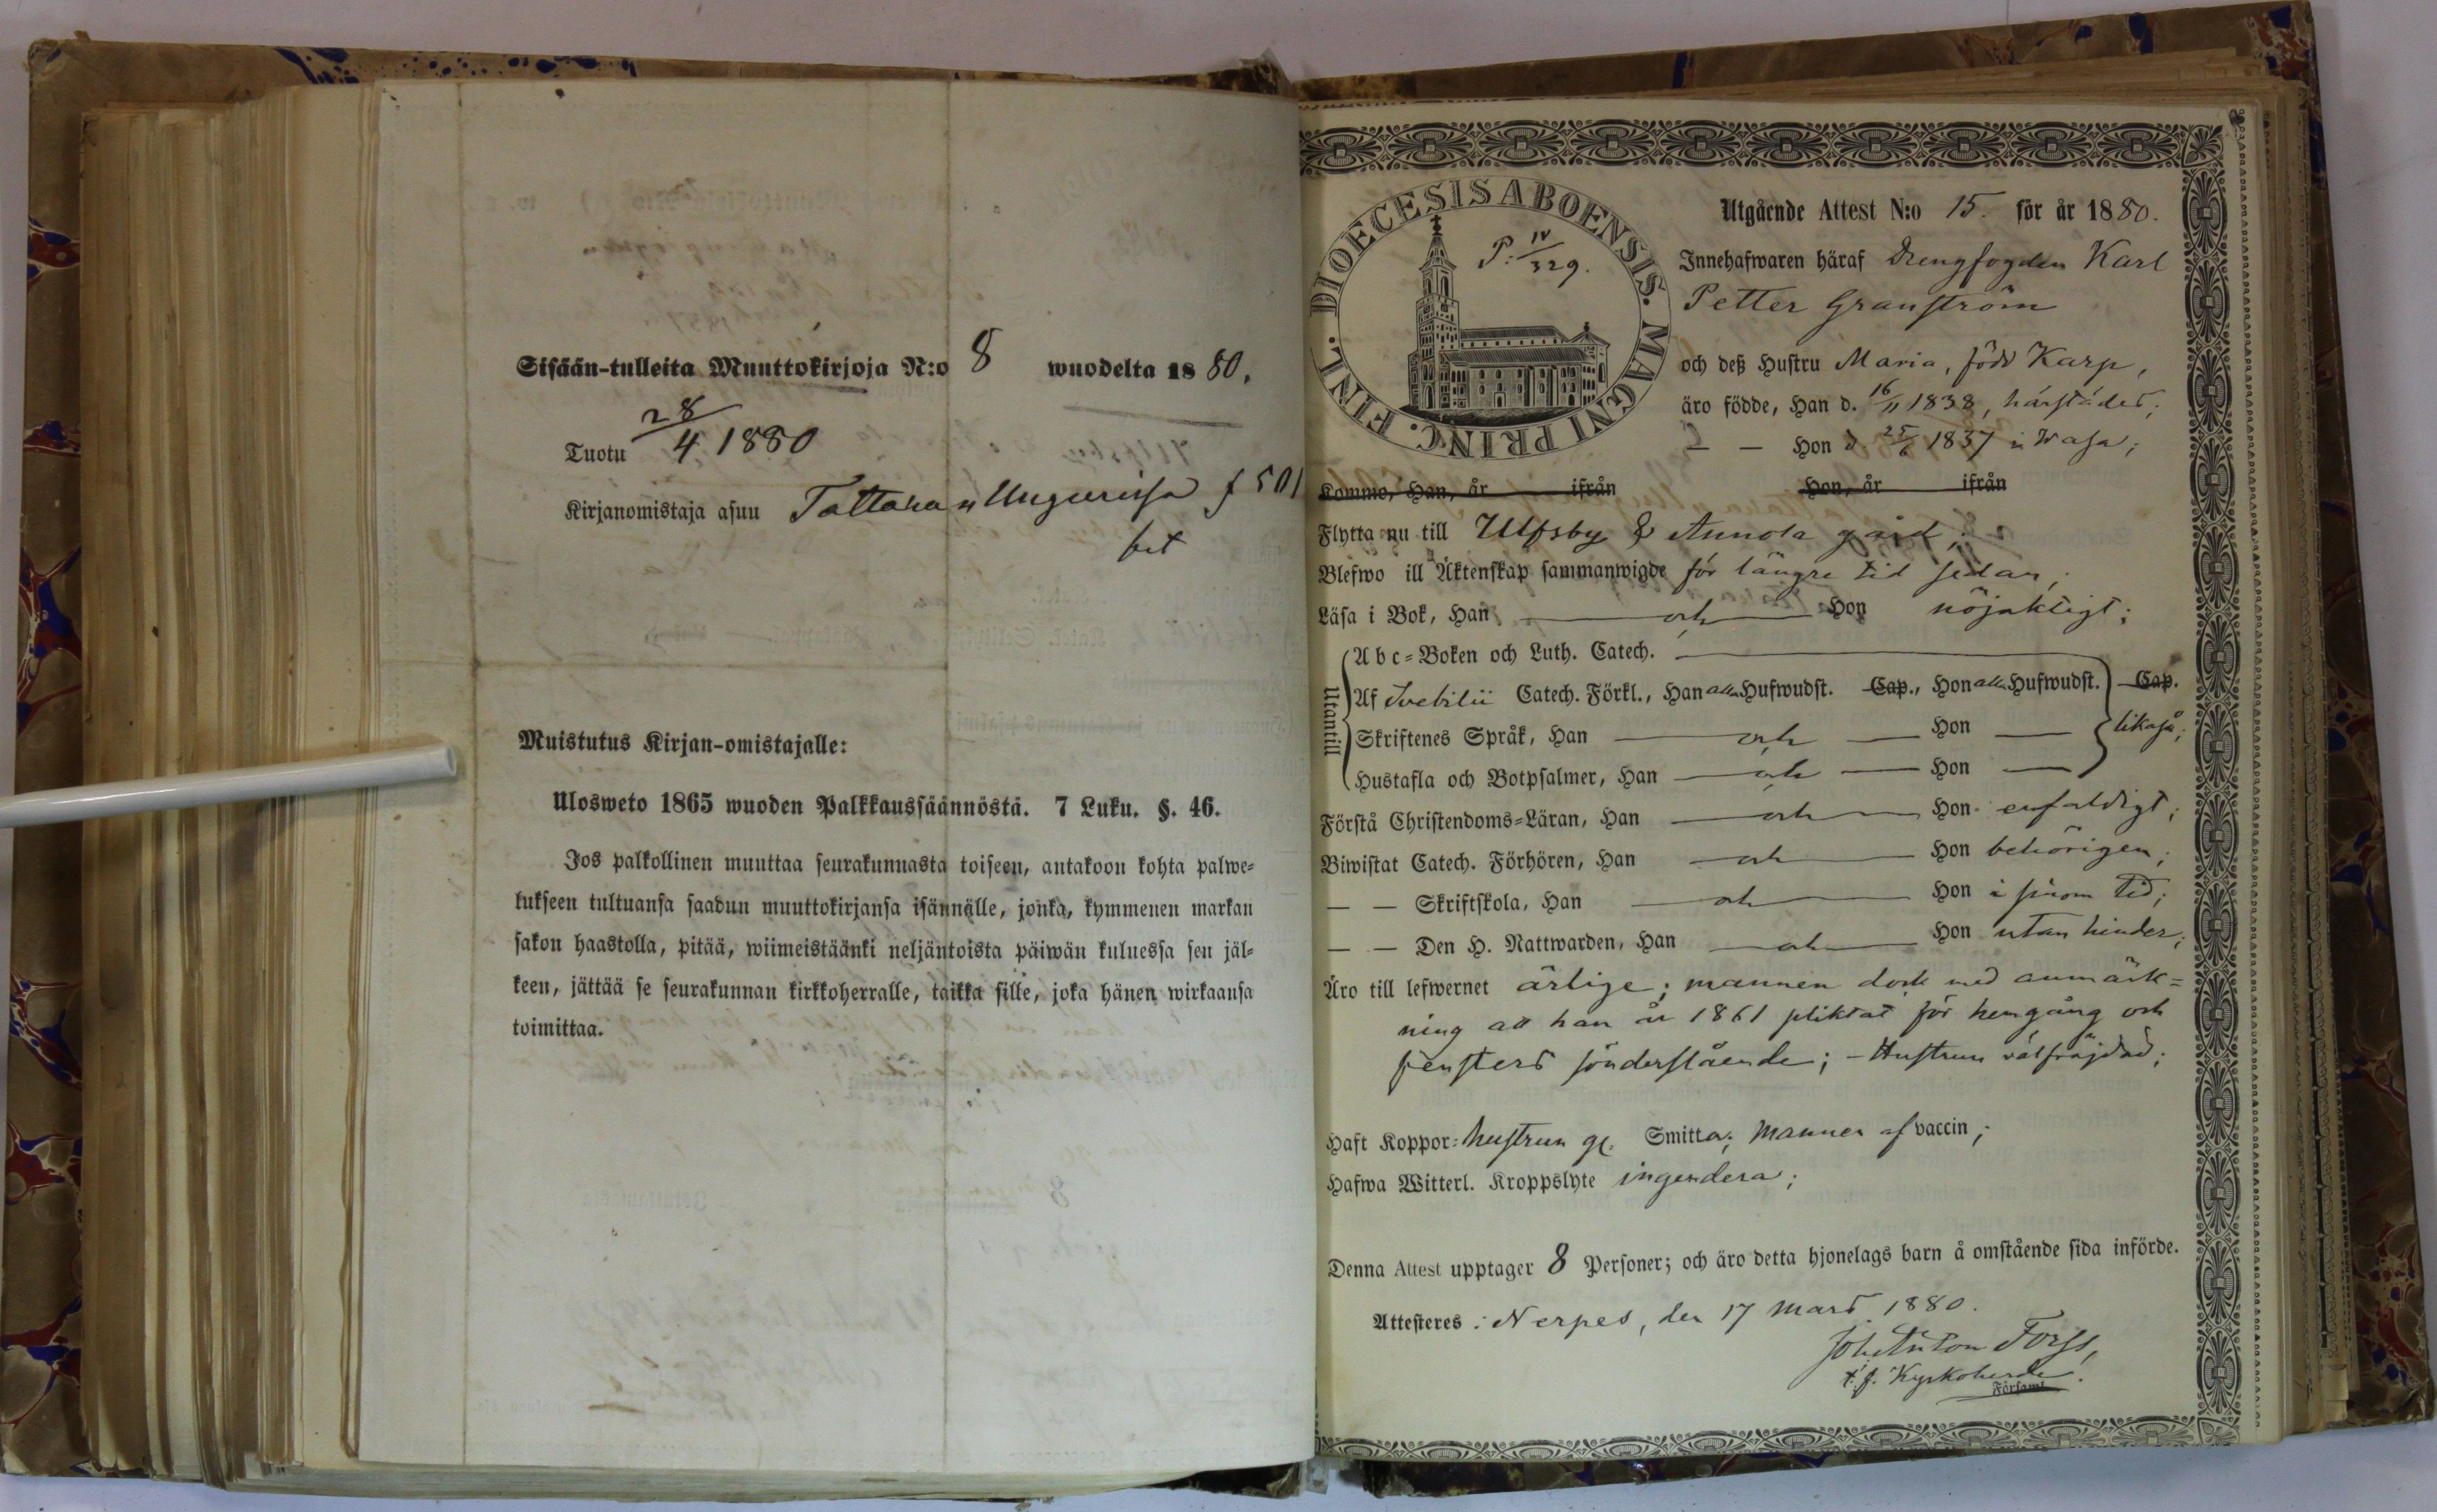 Sisään-tulleita Muuttokirjoja N:o 8 wuodelta 1880.
Tuotu 28/4 1880
Kirjanomistaja asuu Tattara n Ungerissa f 501
Muistutus Kirjan-omistajalle:
Ulosweto 1865 wuoden Palkkaussäännöstä. 7 Luku. §. 46.
Jos palkollinen muuttaa seurakunnasta toiseen, antakoon kohta palwe-
lukseen tultuansa saadun muuttokirjansa isännälle, jonka, kymmenen markan
sakon haastolla, pitää, wiimeistäänki neljäntoista päiwän kuluessa sen jäl-
keen, jättää se seurakunnan kirkkoherralle, taikka sille, joka hänen wirkaansa
toimittaa.
FINL. DIOECESIS ABOENSIS. MAGNI PRINC.
P: IV/329.
Utgående Attest N:o 15. för år 1880.
Innehafwaren häraf Drengfogden Karl
Petter Granström
och deß Hustru Maria, född Karp,
äro födde, Han d. 16/11 1838, härstädes;
— — Hon d 25/6 1837 i Wasa;
Kommo, Han, år ifrån Hon, år ifrån
Flytta nu till Ulfsby & Annola gård;
Blefwo ill Äktenskap sammanwigde för längre tid sedan;
Läsa i Bok, Han och Hon nöjaktigt;
Utantill
A b c=Boken och Luth. Catech.
Af Svebilii Catech. Förkl., Han alla Hufwudst. Cap., Hon alla Hufwudst. Cap.
Skriftenes Språk, Han och Hon likaså;
Hustafla och Botpsalmer, Han och Hon
Förstå Christendoms=Läran, Han och Hon enfaldigt;
Biwistat Catech. Förhören, Han och Hon behörigen;
— — Skriftskola, Han och Hon i sinom tid;
— — Den H. Nattwarden, Han och Hon utan hinder;
Äro till lefwernet ärlige; mannen dock med anmärk=
ning att han år 1861 pliktat för hemgång och
fensters sönderslående; – Hustrun välfräjdad;
Haft Koppor: hustrun gl. Smitta; mannen af vaccin;
Hafwa Witterl. Kroppslyte ingendera;
Denna Attest upptager 8 Personer; och äro detta hjonelags barn å omstående sida införde.
Attesteres: Nerpes, den 17 Mars 1880.
Joh Anton Forss,
t. f. Kyrkoherde.
Församl